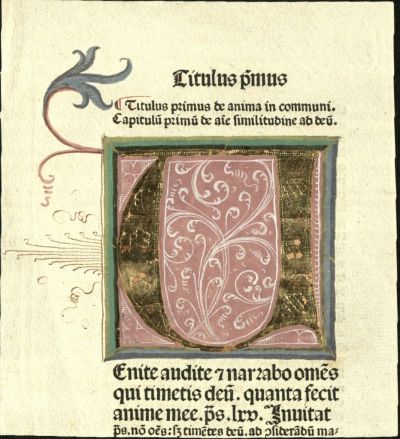 Titulus p̄mus
¶ Titulus primus de anima in communi.
Capitulū primū de aīe similitudine ad deū.
VEnite audite ⁊ narrabo om̄es
qui timetis deū. quanta fecit
anime mee. p̄s. lxv. Inuitat
p̄s. nō oēs: sꝫ timētes deū. ad ↄsiderādū ma-